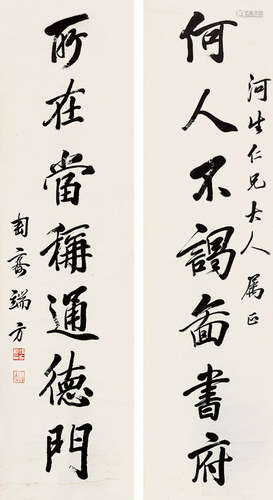 河生仁兄大人屬正
何人不謁圖書府
所在當稱通德門
匋齋端方